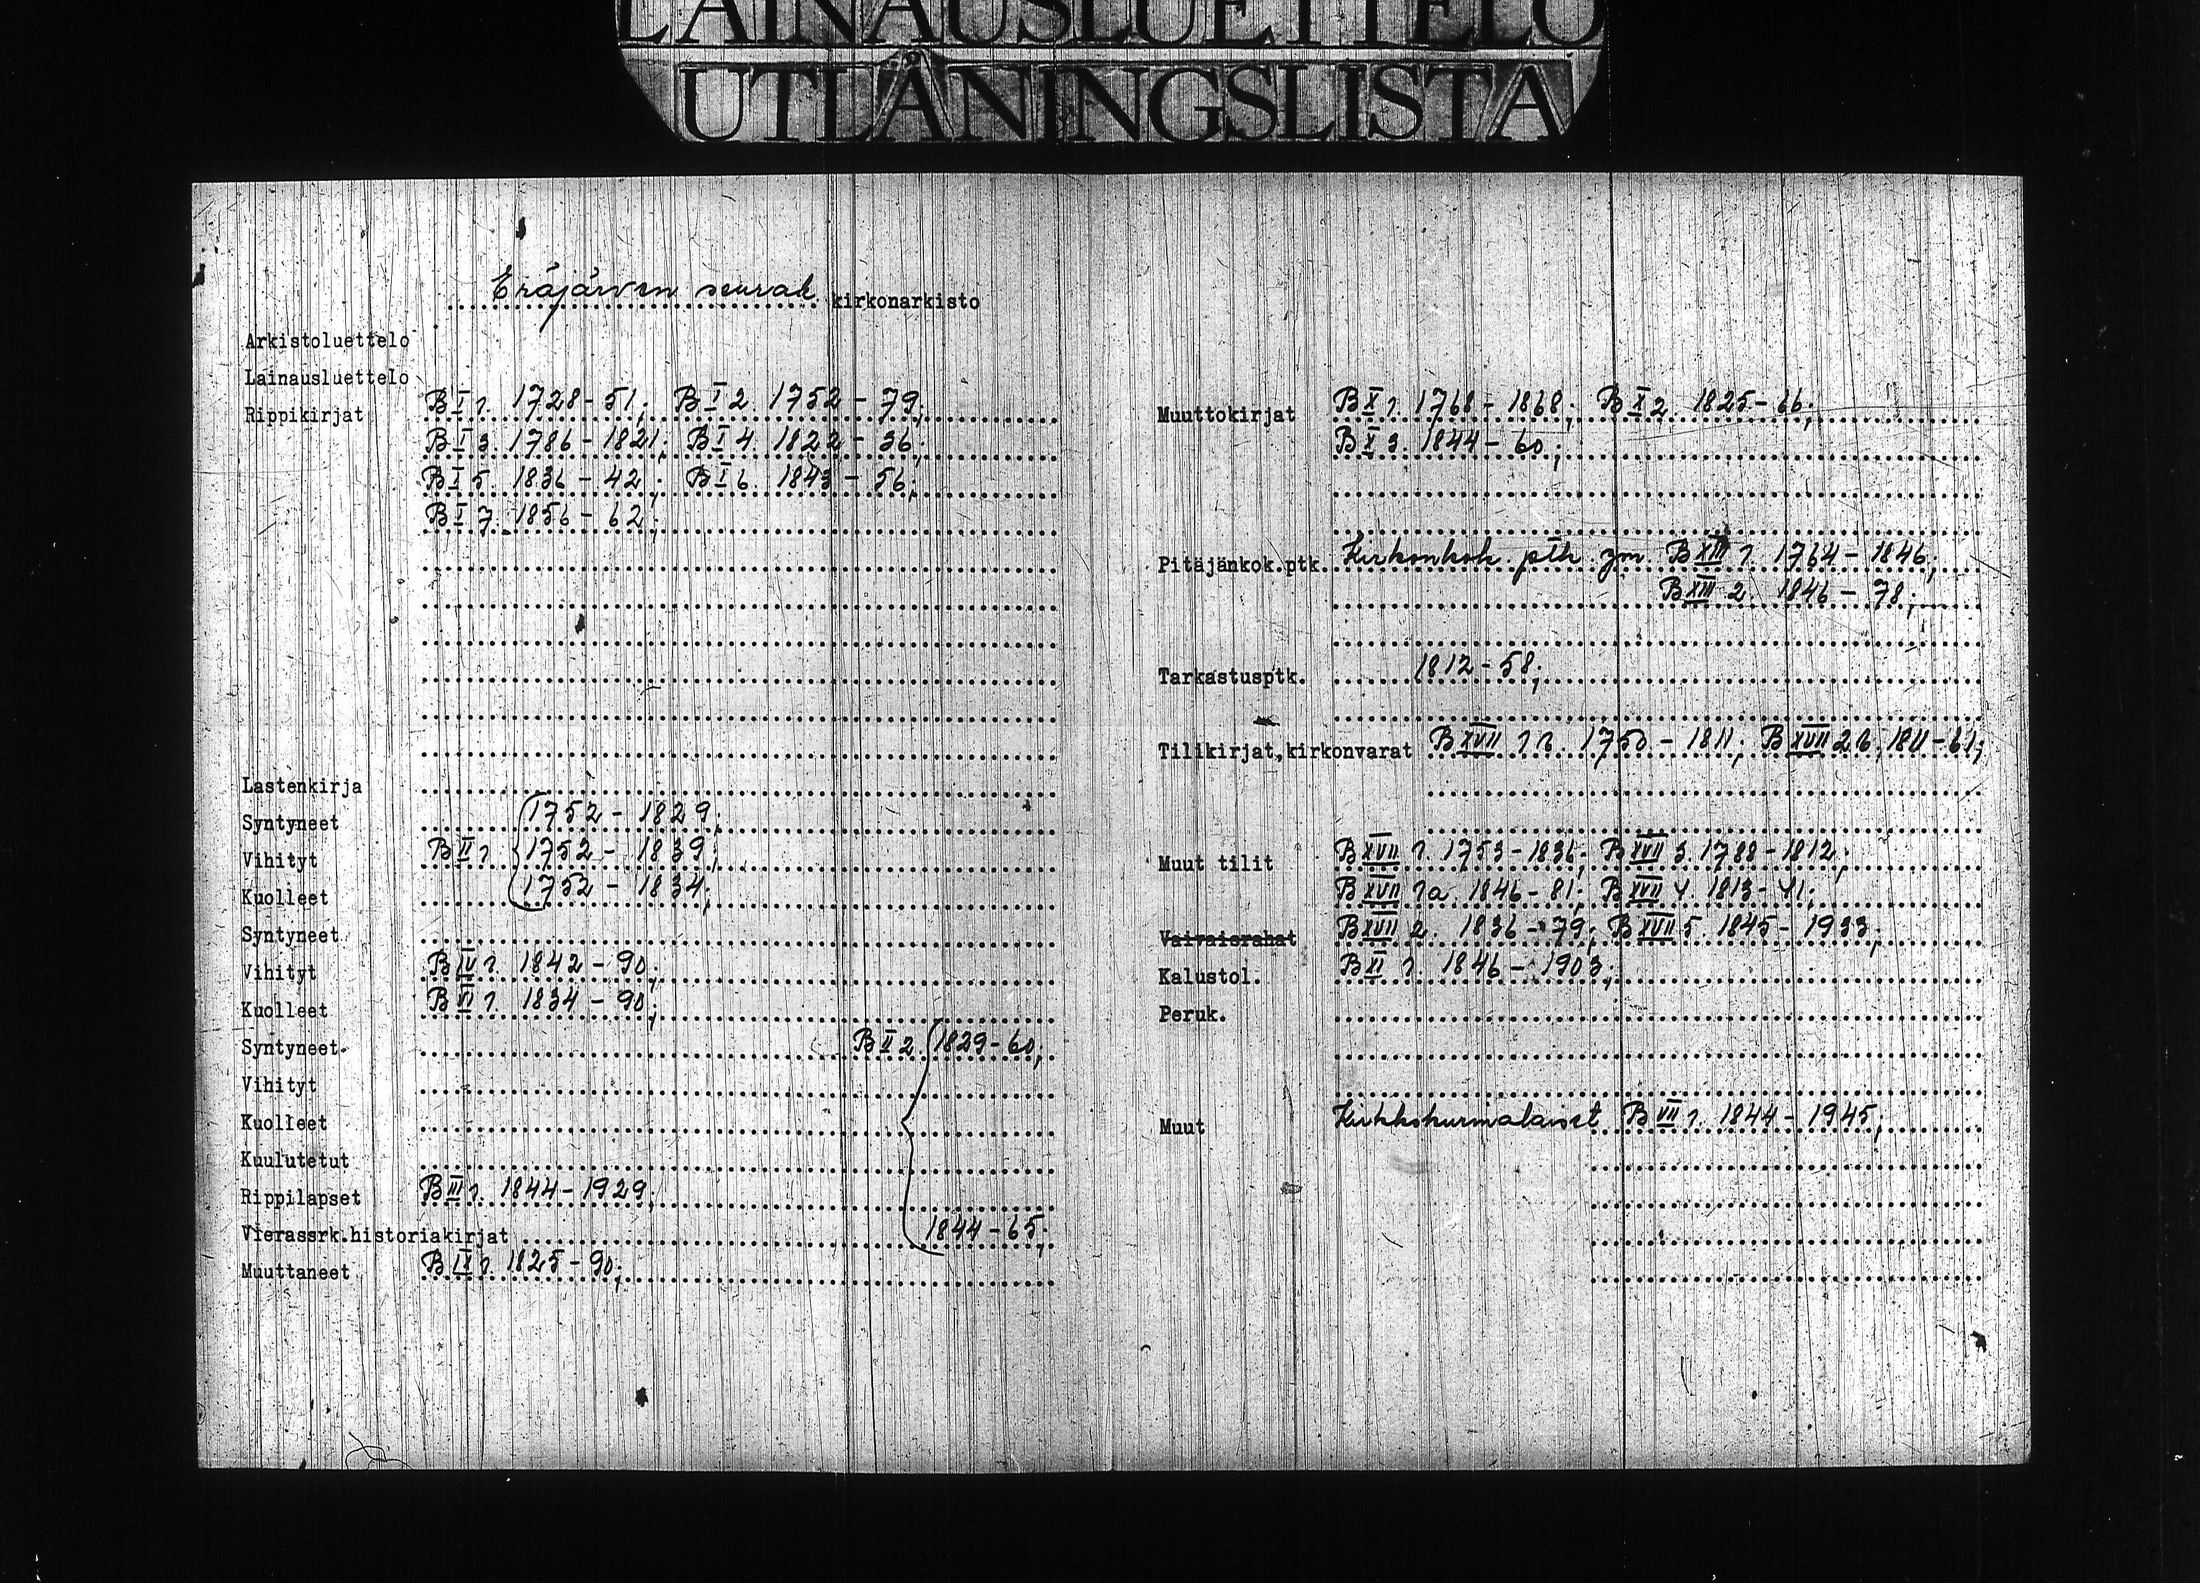 LAINAUSLUETTELO
UTLÅNINGSLISTA
Eräjärven seurak. kirkonarkisto
Arkistoluettelo
Lainausluettelo
Rippikirjat B I 1. 1728-51; B I 2. 1752-79;
B I 3. 1786-1821; B I 4. 1822-36;
B I 5. 1836-42; B I 6. 1843-56;
B I 7. 1856-62;
Lastenkirja
Syntyneet 1752-1829;
Vihityt B II 1. 1752-1839;
Kuolleet 1752-1834;
Syntyneet
Vihityt B IV 1. 1842-90;
Kuolleet B VI 1. 1834-90;
Syntyneet B II 2. 1829-60;
Vihityt
Kuolleet
Kuulutetut
Rippilapset B III 1. 1844-1929;
Vierassrk.historiakirjat 1844-65;
Muuttaneet B IX 1. 1825-90;
Muuttokirjat B X 1. 1768-1868; B X 2. 1825-66;
B X 3. 1844-60;
Pitäjänkok.ptk. Kirkonkok. ptk. ym. B XIII 1. 1764-1846;
B XIII 2. 1846-78;
Tarkastusptk. 1812-58;
Tilikirjat,kirkonvarat B XVII 1b. 1750-1811; B XVII 2b. 1811-61;
Muut tilit B XVII 1. 1753-1836; B XVII 3. 1788-1812;
B XVII 1a. 1846-81; B XVII 4. 1813-41;
Vaivaisrahat B XVII 2. 1836-79; B XVII 5. 1845-1933;
Kalustol. B XI 1. 1846-1903;
Peruk.
Muut Kirkkokurinalaiset B VII 1. 1844-1945;